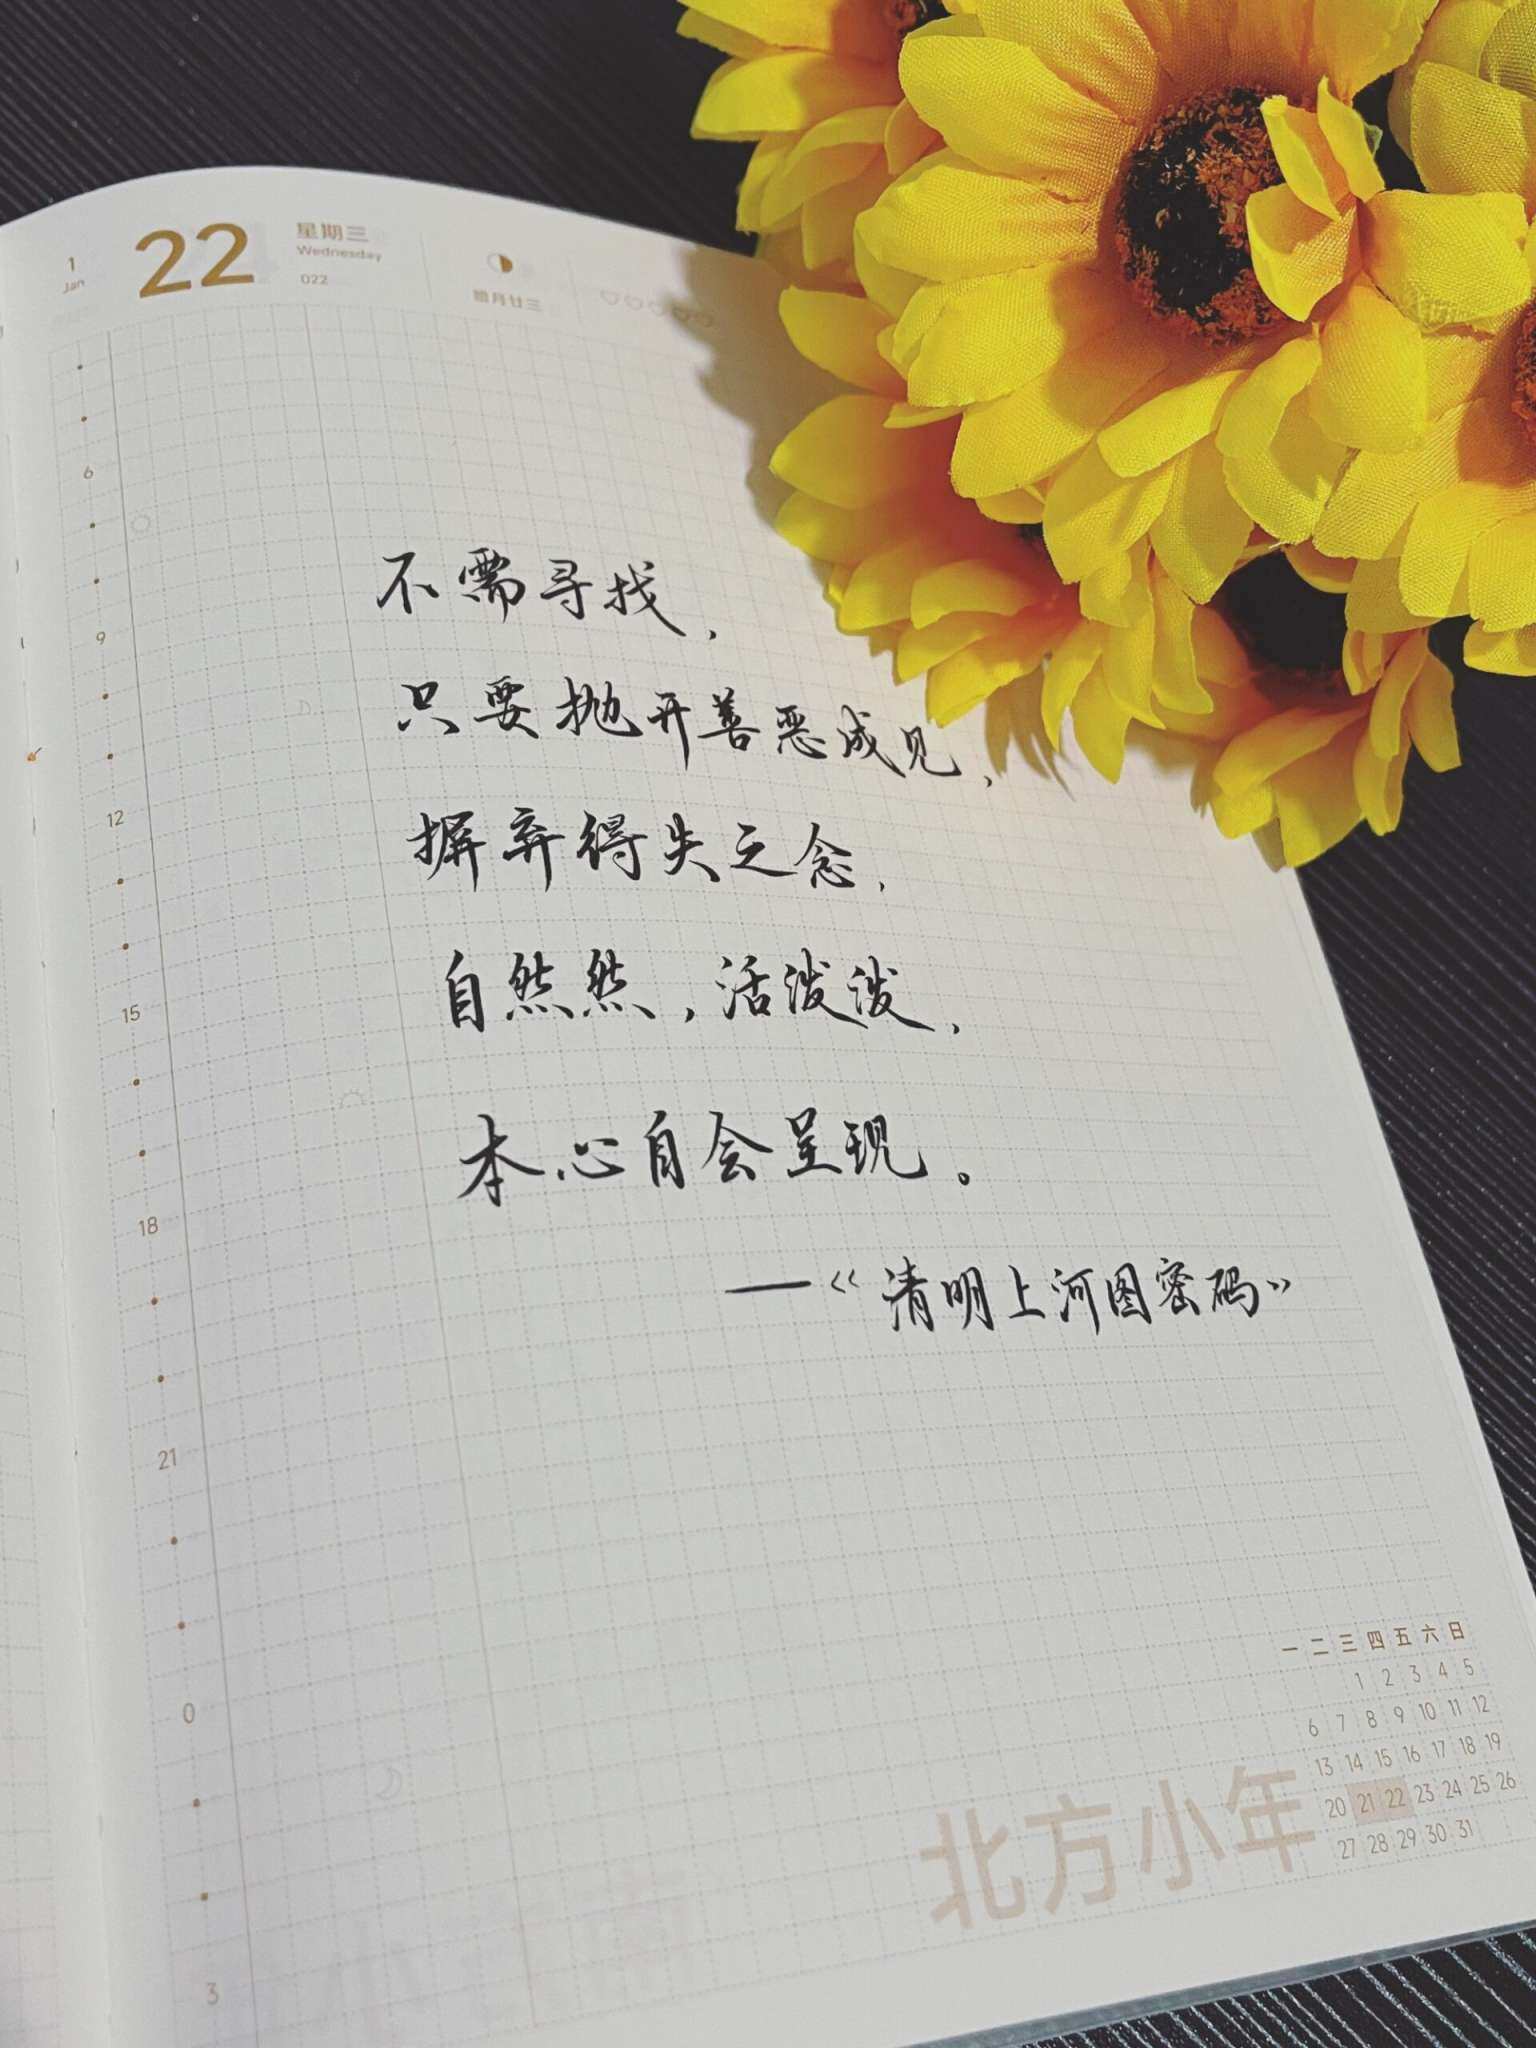 1
Jan
22
星期三
Wednesday
022
腊月廿三
6
9
12
15
18
21
0
3
不需寻找，
只要抛开善恶成见，
摒弃得失之念，
自然然，活泼泼，
本心自会呈现。
——《清明上河图密码》
一 二 三 四 五 六 日
1 2 3 4 5
6 7 8 9 10 11 12
13 14 15 16 17 18 19
20 21 22 23 24 25 26
27 28 29 30 31
北方小年